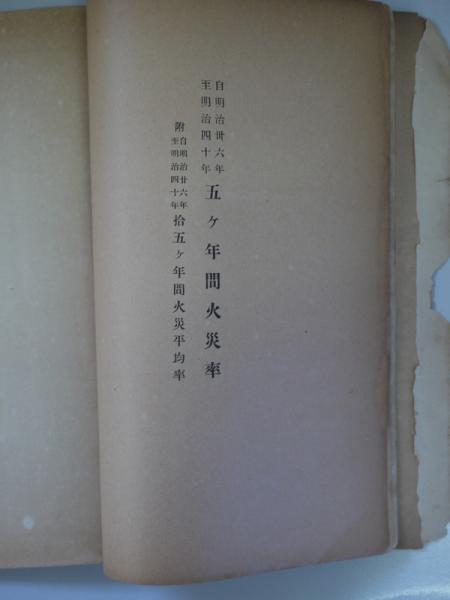 自明治卅六年
至明治四十年
五ケ年間火災率
附
自明治廿六年
至明治四十年
拾五ケ年間火災平均率